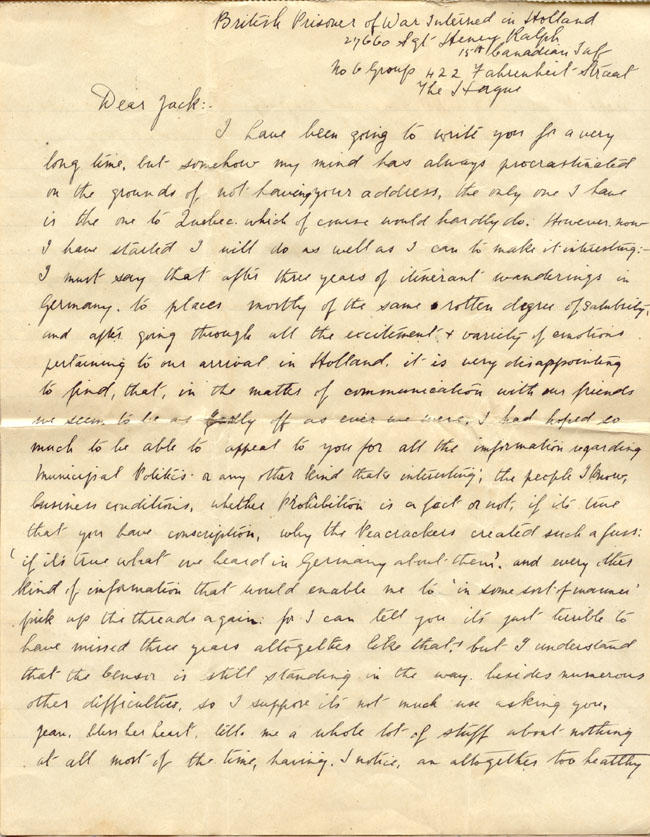 British Prisoner of War Interned in Holland
27660 Sgt Henry Ralph
15th Canadian Inf
No 6 Group 422 Fahrenheit Straat
The Hague
Dear Jack:-
I have been going to write you for a very
long time, but somehow my mind has always procrastinated
on the grounds of not having your address, the only one I have
is the one to Quebec. which of course would hardly do. However now
I have started I will do as well as I can to make it interesting:-
I must say that after three years of itinerant wanderings in
Germany. to places mostly of the same rotten degree of salubrity,
and after going through all the excitement & variety of emotions
pertaining to our arrival in Holland. it is very disappointing
to find, that, in the matter of communication with our friends
we seem to be as off as ever we were. I had hoped so
much to be able to appeal to you for all the information regarding
Municipal Politics or any other kind that's interesting; the people I know,
business conditions, whether Prohibition is a fact or not, if its true
that you have conscription, why the Peacrackers created such a fuss:
'if its true what we heard in Germany about them'. and every other
kind of information that would enable me to 'in some sort of manner'
pick up the threads again: for I can tell you its just terrible to
have missed three years altogether like that, but I understand
that the Censor is still standing in the way. besides numerous
other difficulties, so I suppose its not much use asking you,
Jean, bless her heart, tells me a whole lot of stuff about nothing
at all most of the time, having, I notice, an altogether too healthy